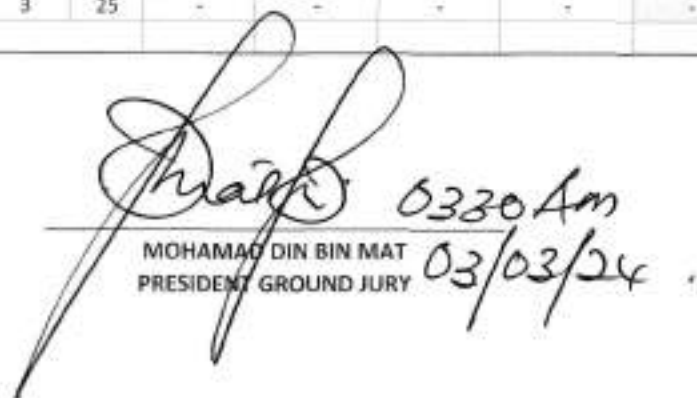 3 25 - - - - -
0330 Am
MOHAMAD DIN BIN MAT
PRESIDENT GROUND JURY
03/03/24 .